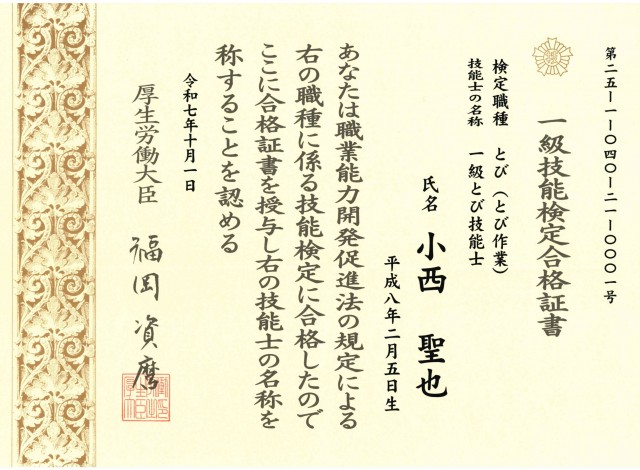 第二五―一―〇四〇―二一―〇〇〇一号
一級技能検定合格証書
検定職種　とび（とび作業）
技能士の名称　一級とび技能士
氏名　小西　聖也
平成八年二月五日生
あなたは職業能力開発促進法の規定による
右の職種に係る技能検定に合格したので
ここに合格証書を授与し右の技能士の名称を
称することを認める
令和七年十月一日
厚生労働大臣　福岡　資麿